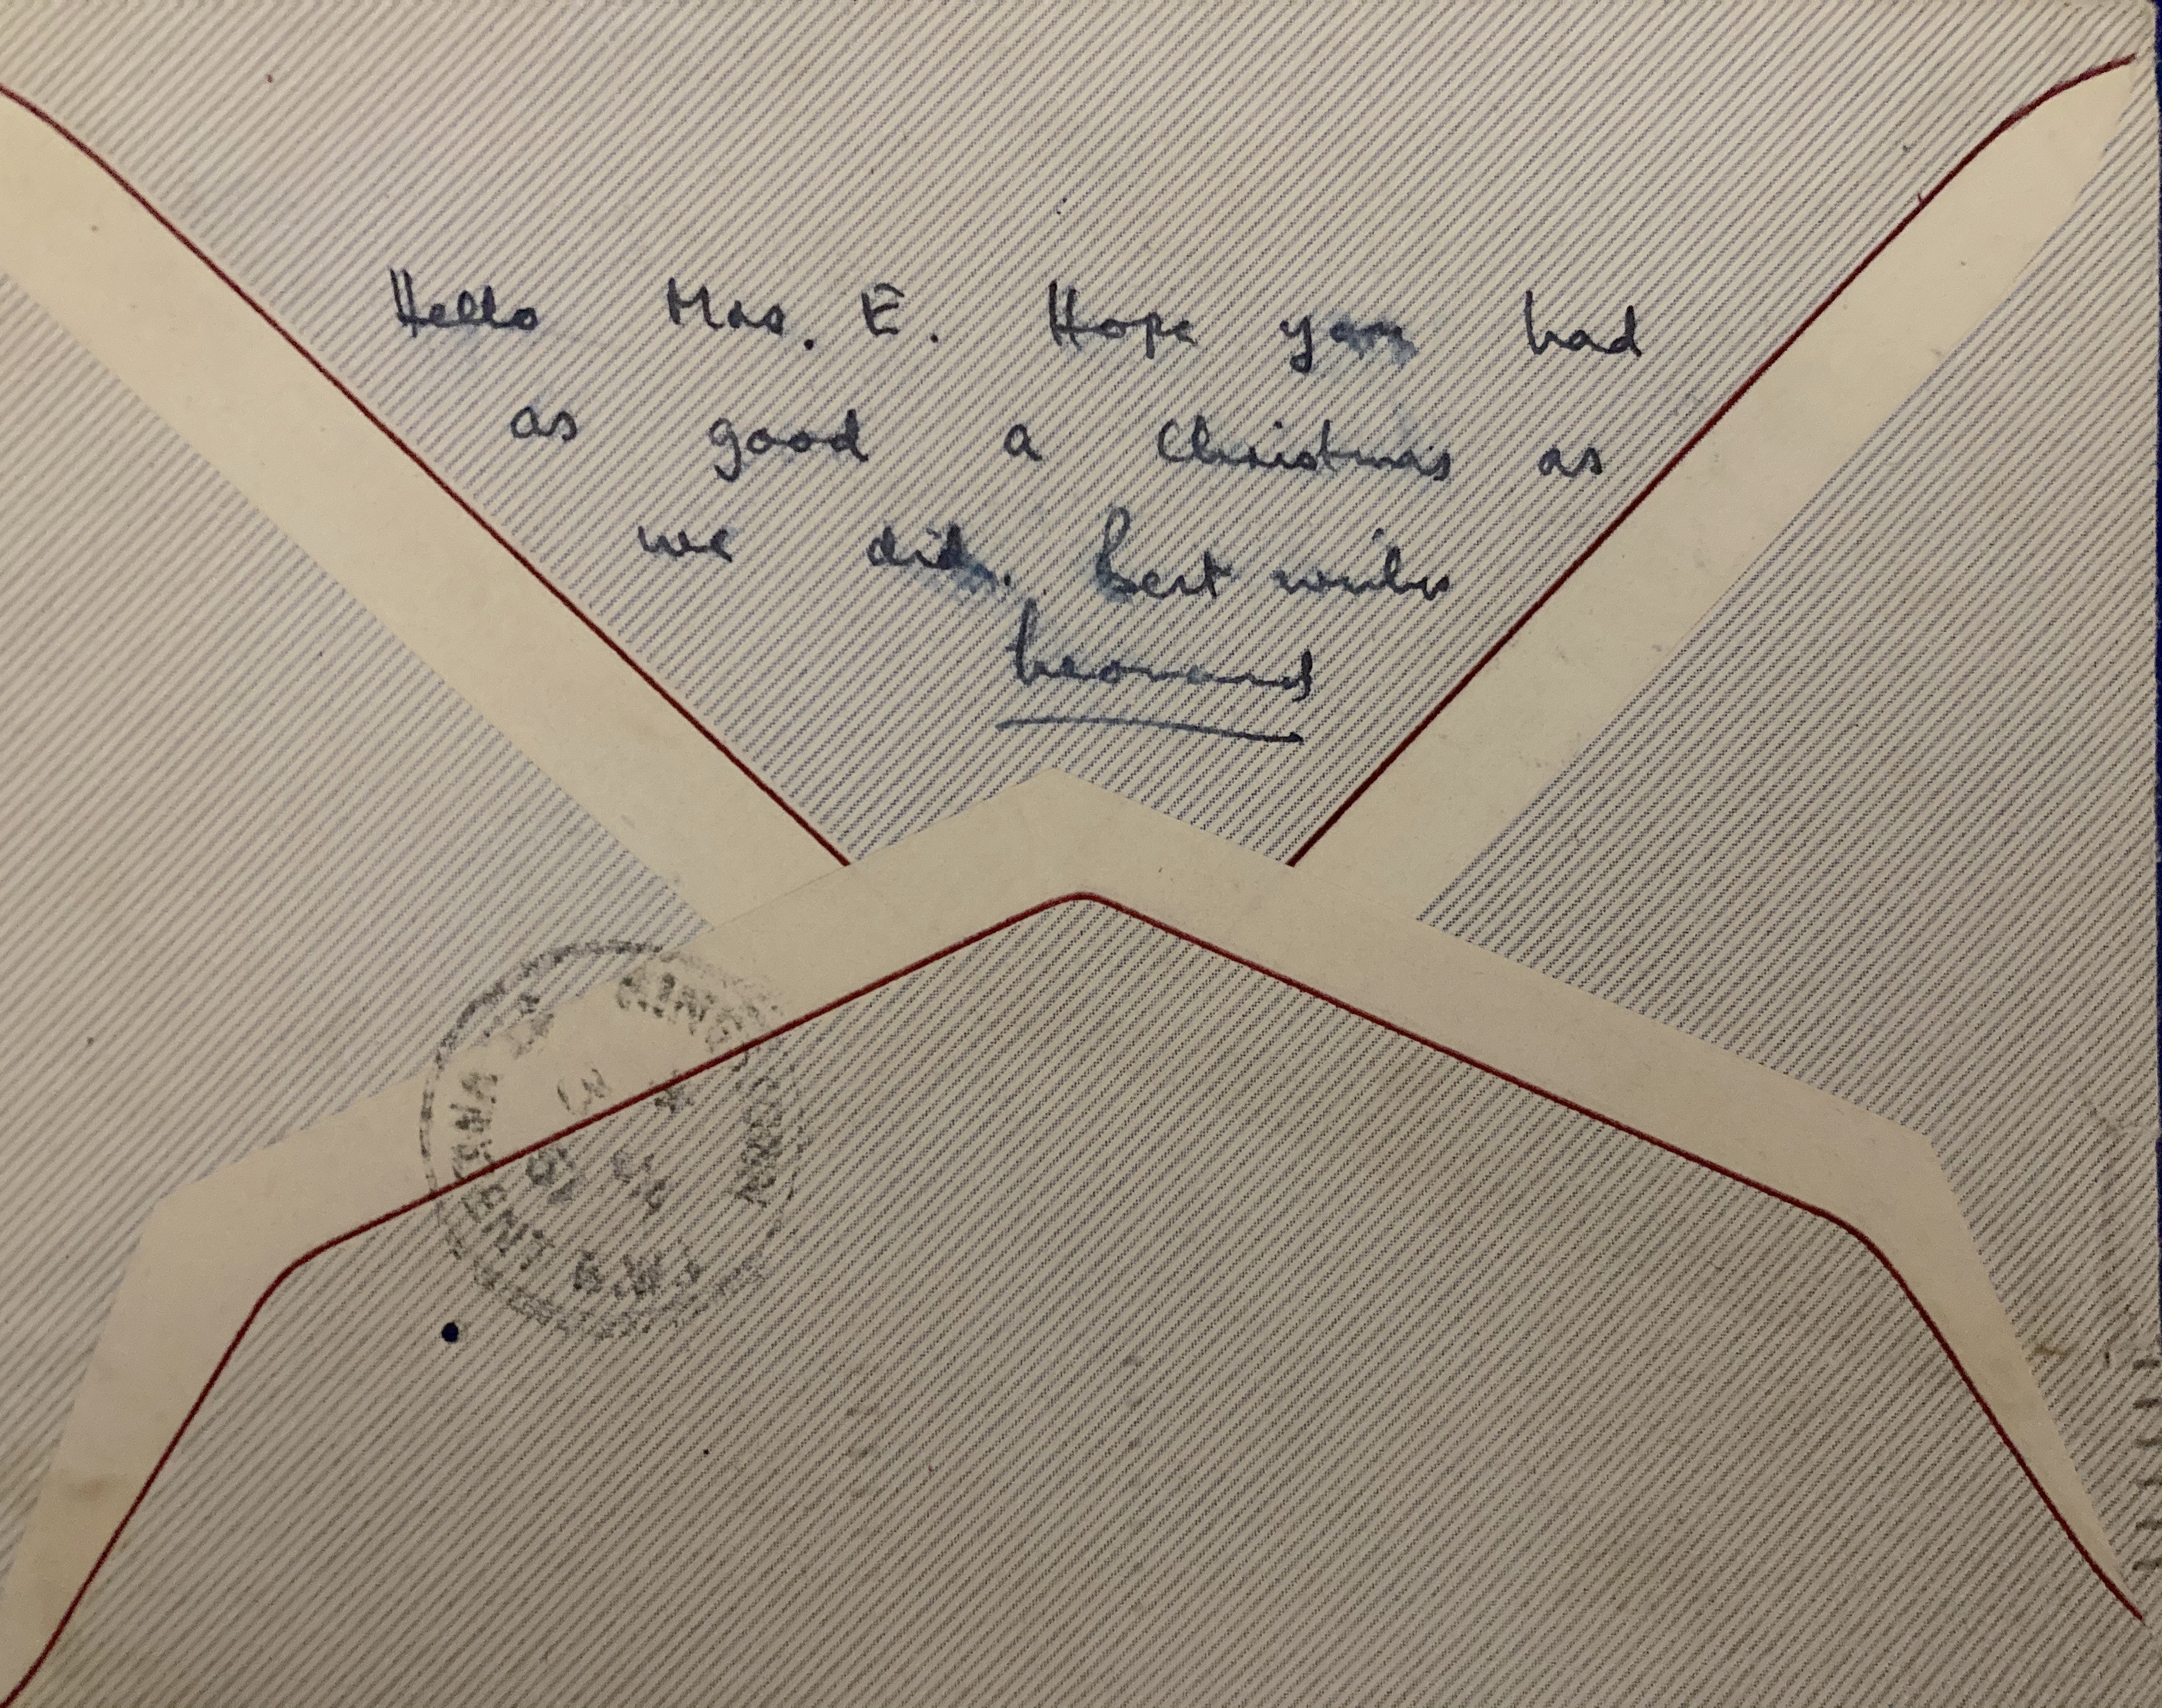 Hello Mrs. E. Hope you had
as good a Christmas as
we did. Best wishes
Leonard
KINGSTOWN
ST VINCENT B.W.I.